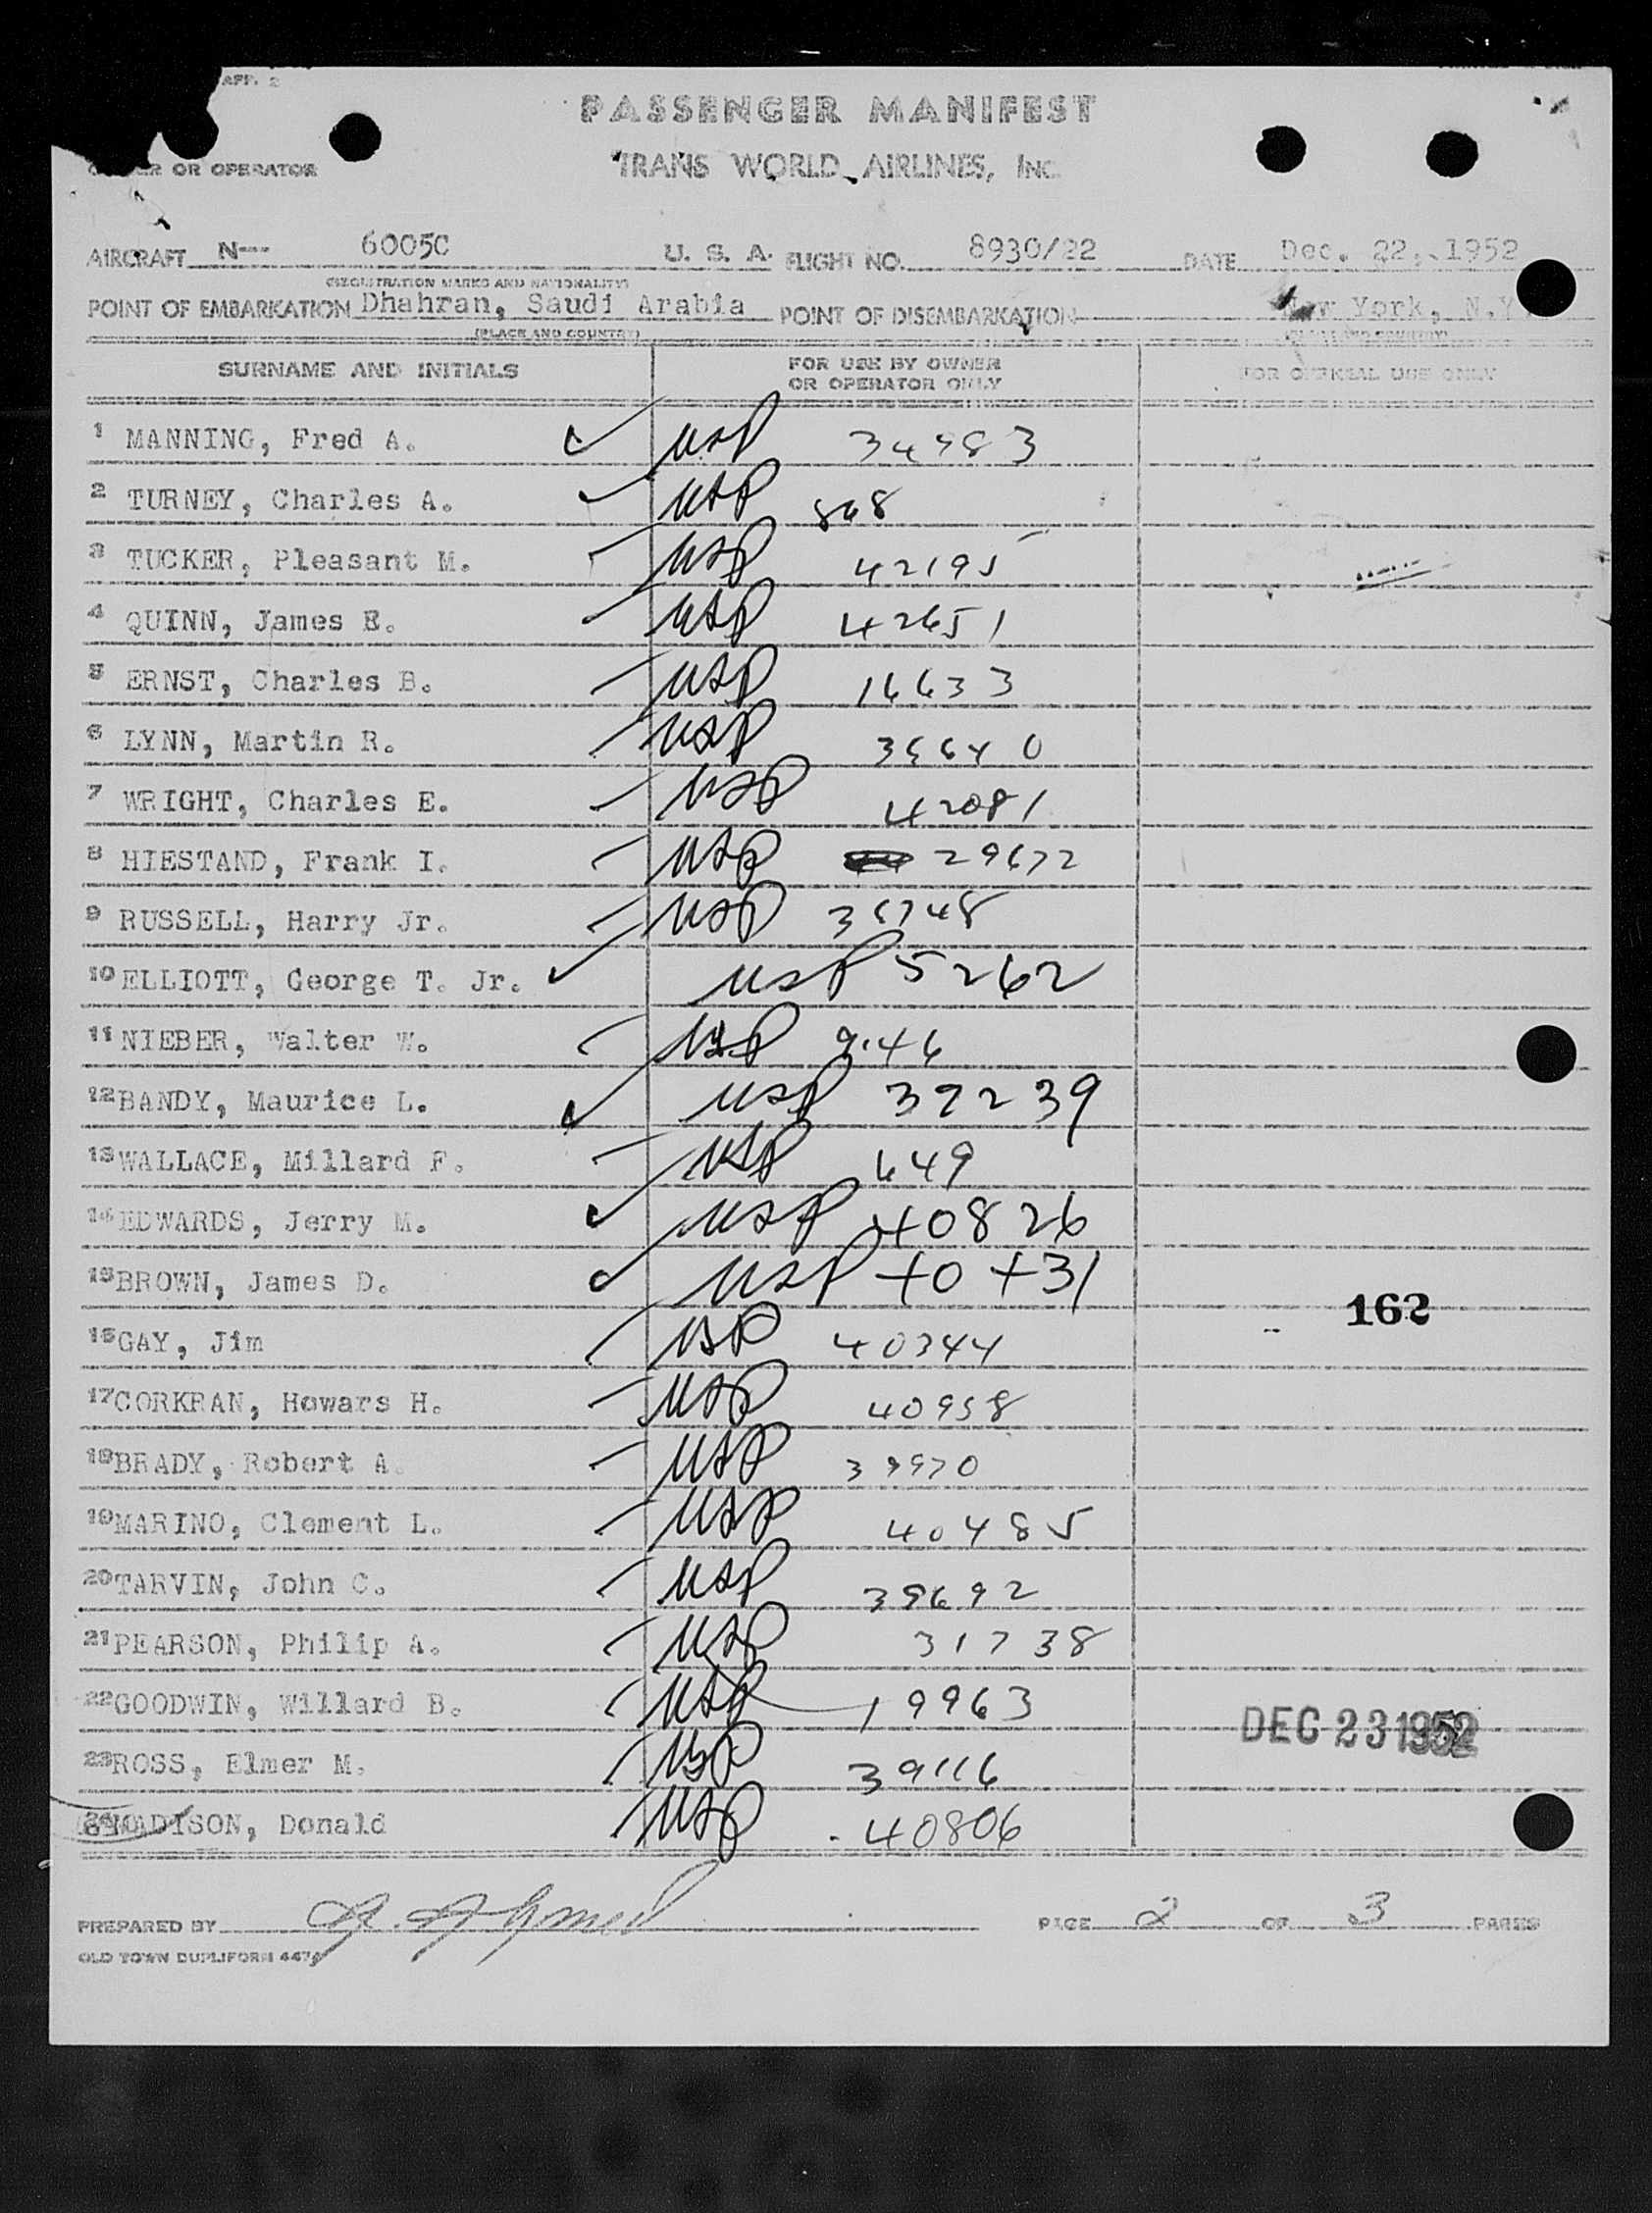 APP. 2
PASSENGER MANIFEST
OR OPERATOR TRANS WORLD AIRLINES, INC.
AIRCRAFT N-- 6005C U. S. A. FLIGHT NO. 8930/22 DATE Dec. 22, 1952
(REGISTRATION MARKS AND NATIONALITY)
POINT OF EMBARKATION Dhahran, Saudi Arabia POINT OF DISEMBARKATION New York, N.Y.
(PLACE AND COUNTRY) (PLACE AND COUNTRY)
SURNAME AND INITIALS FOR USE BY OWNER OR OPERATOR ONLY FOR OFFICIAL USE ONLY
1 MANNING, Fred A. USP 34983
2 TURNEY, Charles A. USP 868
3 TUCKER, Pleasant M. USP 42195
4 QUINN, James E. USP 42651
5 ERNST, Charles B. USP 16633
6 LYNN, Martin R. USP
7 WRIGHT, Charles E. USP 42081
8 HIESTAND, Frank I. USP 29672
9 RUSSELL, Harry Jr. USP 36748
10 ELLIOTT, George T. Jr. USP 5262
11 NIEBER, Walter W. USP
12 BANDY, Maurice L. USP 39239
13 WALLACE, Millard F. USP 649
14 EDWARDS, Jerry M. USP 40826
15 BROWN, James D. USP 40431
162
16 GAY, Jim USP 40344
17 CORKRAN, Howars H. USP 40958
18 BRADY, Robert A. USP 39970
19 MARINO, Clement L. USP 40485
20 TARVIN, John C. USP 39692
21 PEARSON, Philip A. USP 31738
22 GOODWIN, Willard B. USP 19963
DEC 23 1952
23 ROSS, Elmer M. USP 39116
24 MADISON, Donald USP 40806
PREPARED BY PAGE 2 OF 3 PAGES
OLD TOWN DUPLIFORM 447